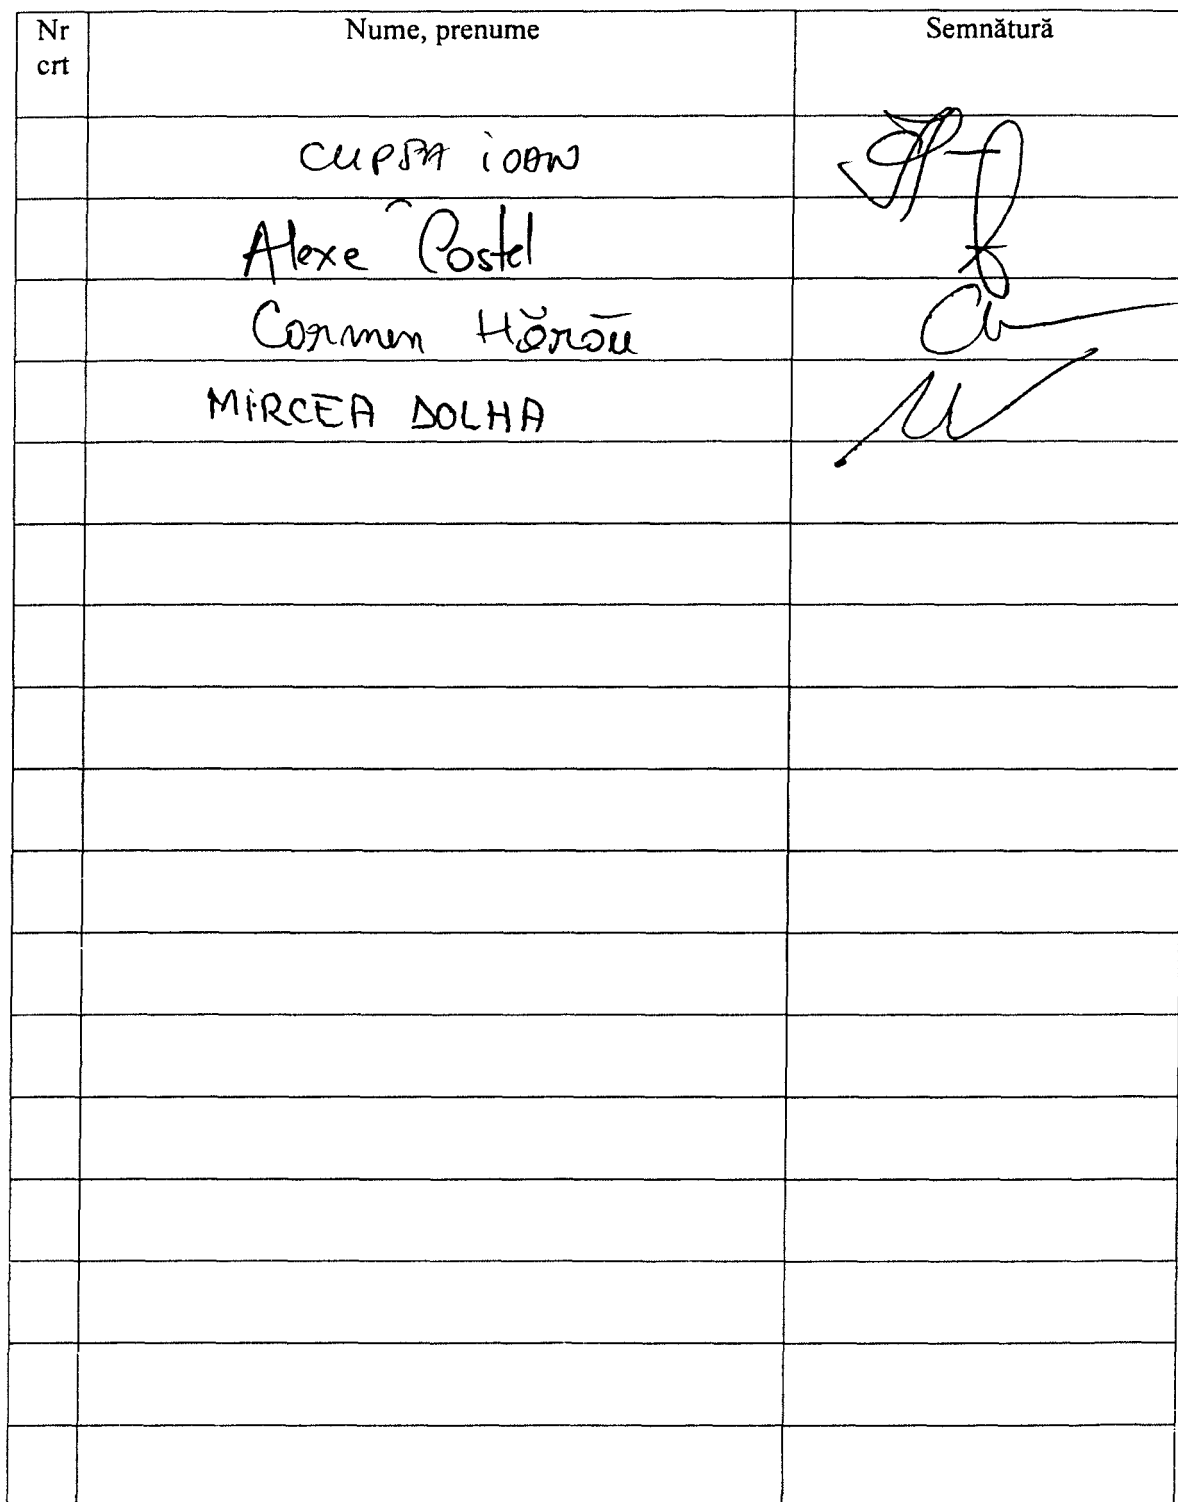 Nr crt Nume, prenume Semnătură
CUPȘA IOAN
Alexe Costel
Carmen Hărău
MIRCEA DOLHA